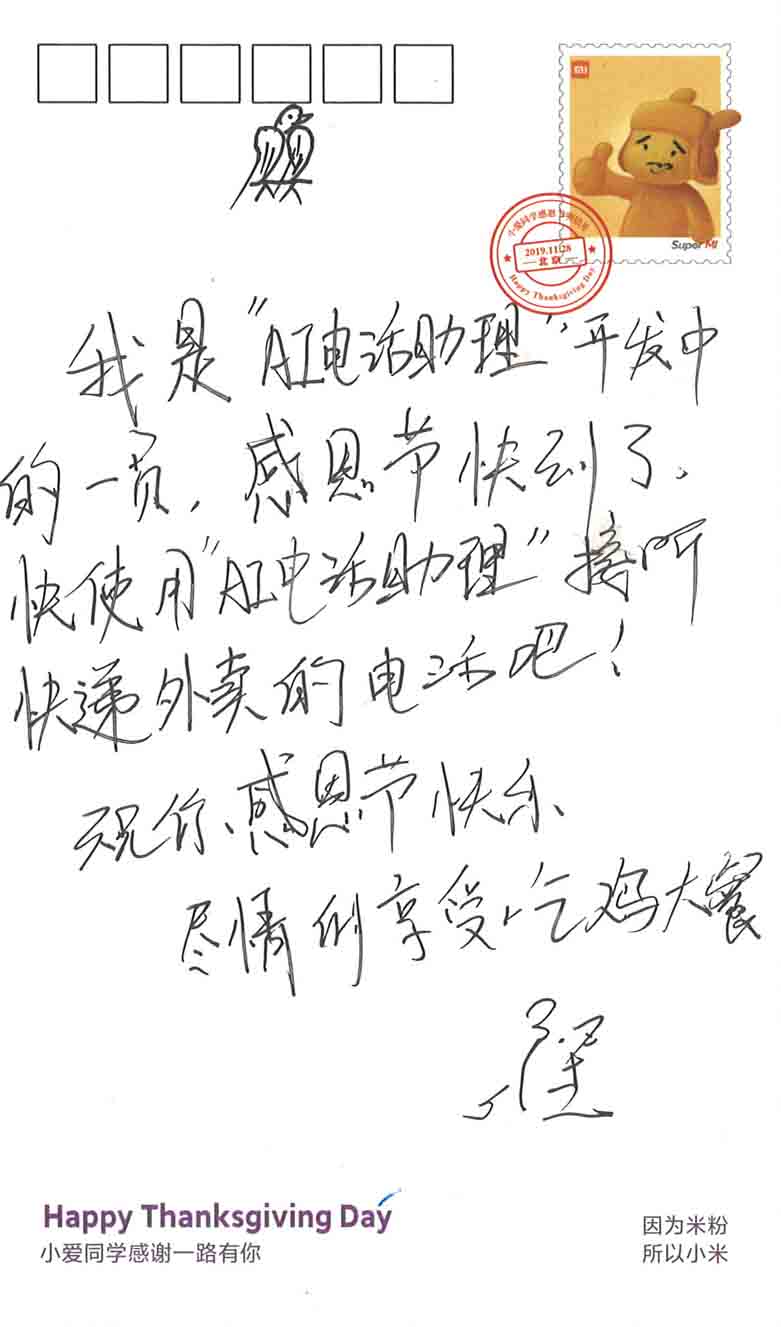 MI
Super MI
2019.11.28
北京
Happy Thanksgiving Day
我是“AI电话助理”开发中
的一员,感恩节快到了.
快使用“AI电话助理”接听
快递外卖的电话吧!
祝你、感恩节快乐、
尽情的享受吃鸡大餐
Happy Thanksgiving Day
小爱同学感谢一路有你
因为米粉
所以小米